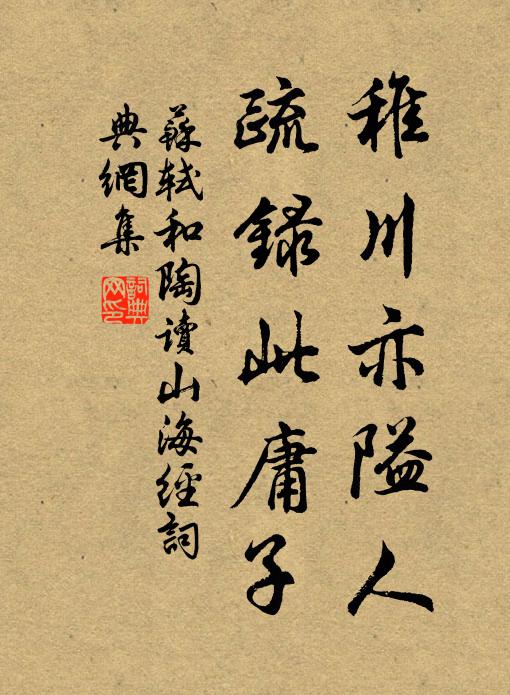 稚川亦隘人
疏錄此庸子
蘇軾和陶讀山海經詞
典網集
詞典網印